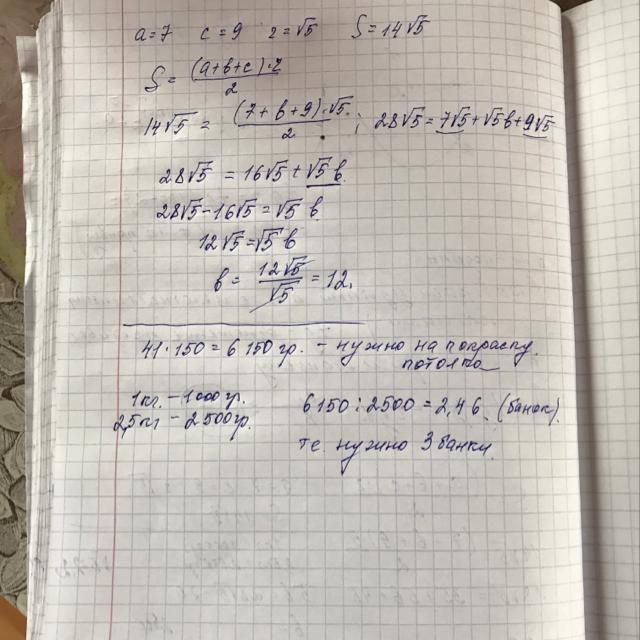 a=7 c=9 r=√5 S=14√5
S = (a+b+c)·r / 2
14√5 = (7+b+9)·√5 / 2 ; 28√5=7√5+√5b+9√5
28√5 = 16√5+√5 b
28√5-16√5=√5 b
12√5=√5 b
b = 12√5 / √5 = 12.
41·150=6150гр. - нужно на покраску
потолка
1кг. - 1000гр.
2,5кг - 2500гр.
6150:2500=2,46 (банок).
те нужно 3 банки.